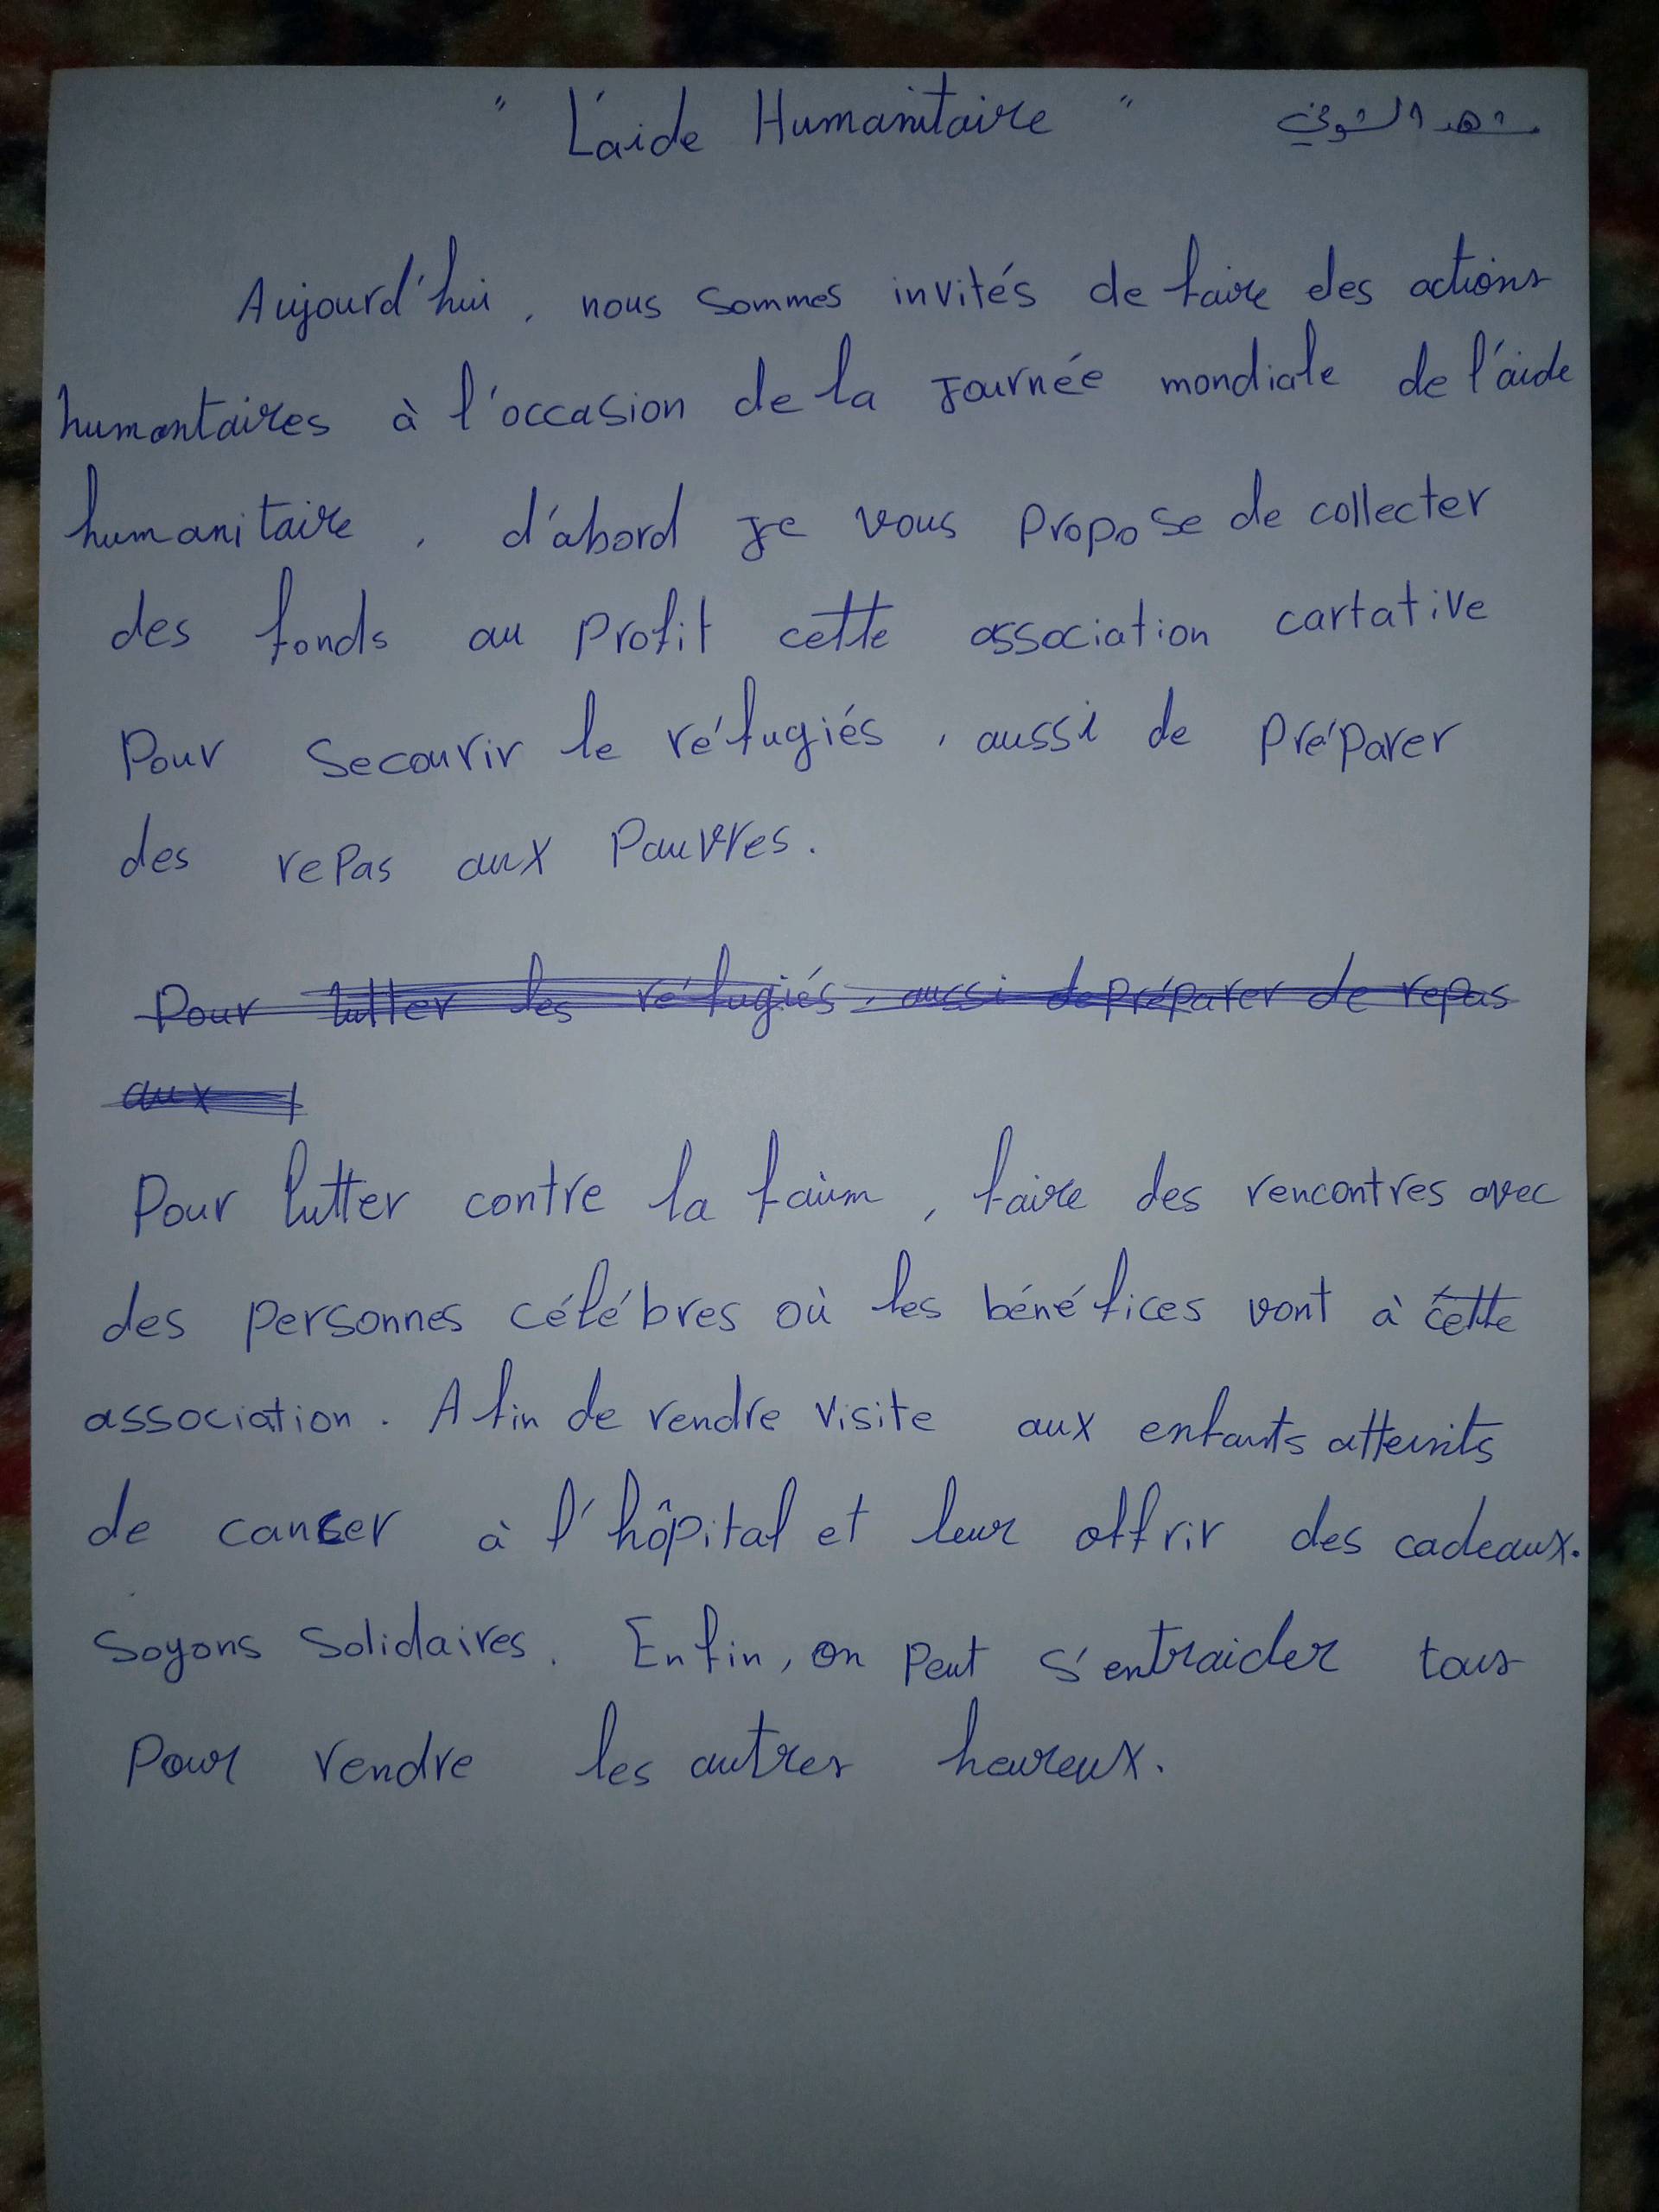 " L'aide Humanitaire " شهد الشوفي
Aujourd'hui, nous sommes invités de faire des actions
humantaires à l'occasion de la Journée mondiale de l'aide
humanitaire, d'abord je vous propose de collecter
des fonds au profit cette association cartative
Pour secourir le réfugiés, aussi de préparer
des repas aux Pauvres.
Pour lutter des réfugiés, aussi de préparer de repas
aux
Pour lutter contre la faim, faire des rencontres avec
des personnes célébres où les bénéfices vont à cette
association. Afin de rendre visite aux enfants atteints
de cancer à l'hôpital et leur offrir des cadeaux.
Soyons Solidaires. Enfin, on peut s'entraider tous
Pour rendre les autres heureux.